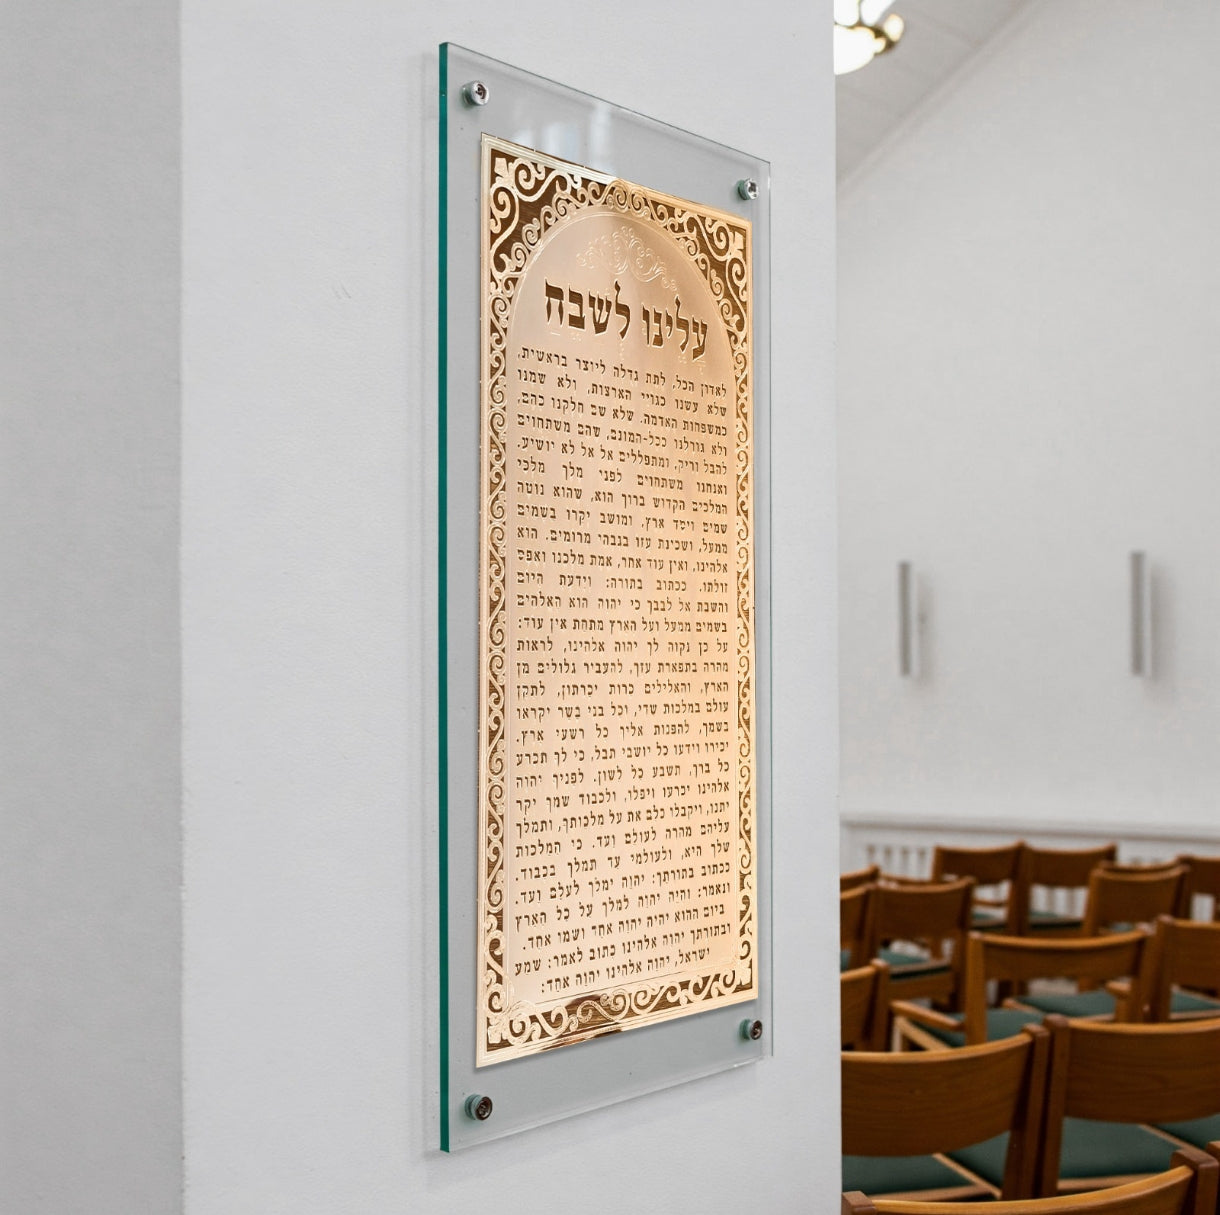 עלינו לשבח
לאדון הכל, לתת גדלה ליוצר בראשית,
שלא עשנו כגויי הארצות, ולא שמנו
כמשפחות האדמה. שלא שם חלקנו כהם,
ולא גורלנו ככל-המונם, שהם משתחוים
להבל וריק, ומתפללים אל אל לא יושיע.
ואנחנו משתחוים לפני מלך מלכי
המלכים הקדוש ברוך הוא, שהוא נוטה
שמים ויסד ארץ, ומושב יקרו בשמים
ממעל, ושכינת עזו בגבהי מרומים. הוא
אלהינו, ואין עוד אחר, אמת מלכנו ואפס
זולתו. ככתוב בתורה: וידעת היום
והשבת אל לבבך כי יהוה הוא האלהים
בשמים ממעל ועל הארץ מתחת אין עוד:
על כן נקוה לך יהוה אלהינו, לראות
מהרה בתפארת עזך, להעביר גלולים מן
הארץ, והאלילים כרות יכרתון, לתקן
עולם במלכות שדי, וכל בני בשר יקראו
בשמך, להפנות אליך כל רשעי ארץ.
יכירו וידעו כל יושבי תבל, כי לך תכרע
כל ברך, תשבע כל לשון. לפניך יהוה
אלהינו יכרעו ויפלו, ולכבוד שמך יקר
יתנו, ויקבלו כלם את על מלכותך, ותמלך
עליהם מהרה לעולם ועד. כי המלכות
שלך היא, ולעולמי עד תמלך בכבוד.
ככתוב בתורתך: יהוה ימלך לעלם ועד.
ונאמר: והיה יהוה למלך על כל הארץ
ביום ההוא יהיה יהוה אחד ושמו אחד.
ובתורתך יהוה אלהינו כתוב לאמר: שמע
ישראל, יהוה אלהינו יהוה אחד: